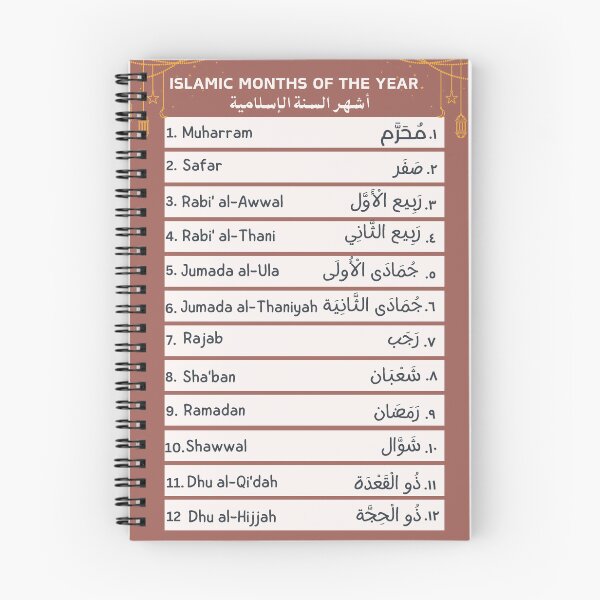 ISLAMIC MONTHS OF THE YEAR
أشهر السنة الإسلامية
1. Muharram مُحَرَّم .١
2. Safar صَفَر .٢
3. Rabi' al-Awwal رَبِيع الْأَوَّل .٣
4. Rabi' al-Thani رَبِيع الثَّانِي .٤
5. Jumada al-Ula جُمَادَى الْأُولَى .٥
6. Jumada al-Thaniyah جُمَادَى الثَّانِيَة .٦
7. Rajab رَجَب .٧
8. Sha'ban شَعْبَان .٨
9. Ramadan رَمَضَان .٩
10. Shawwal شَوَّال .١٠
11. Dhu al-Qi'dah ذُو الْقَعْدَة .١١
12 Dhu al-Hijjah ذُو الْحِجَّة .١٢